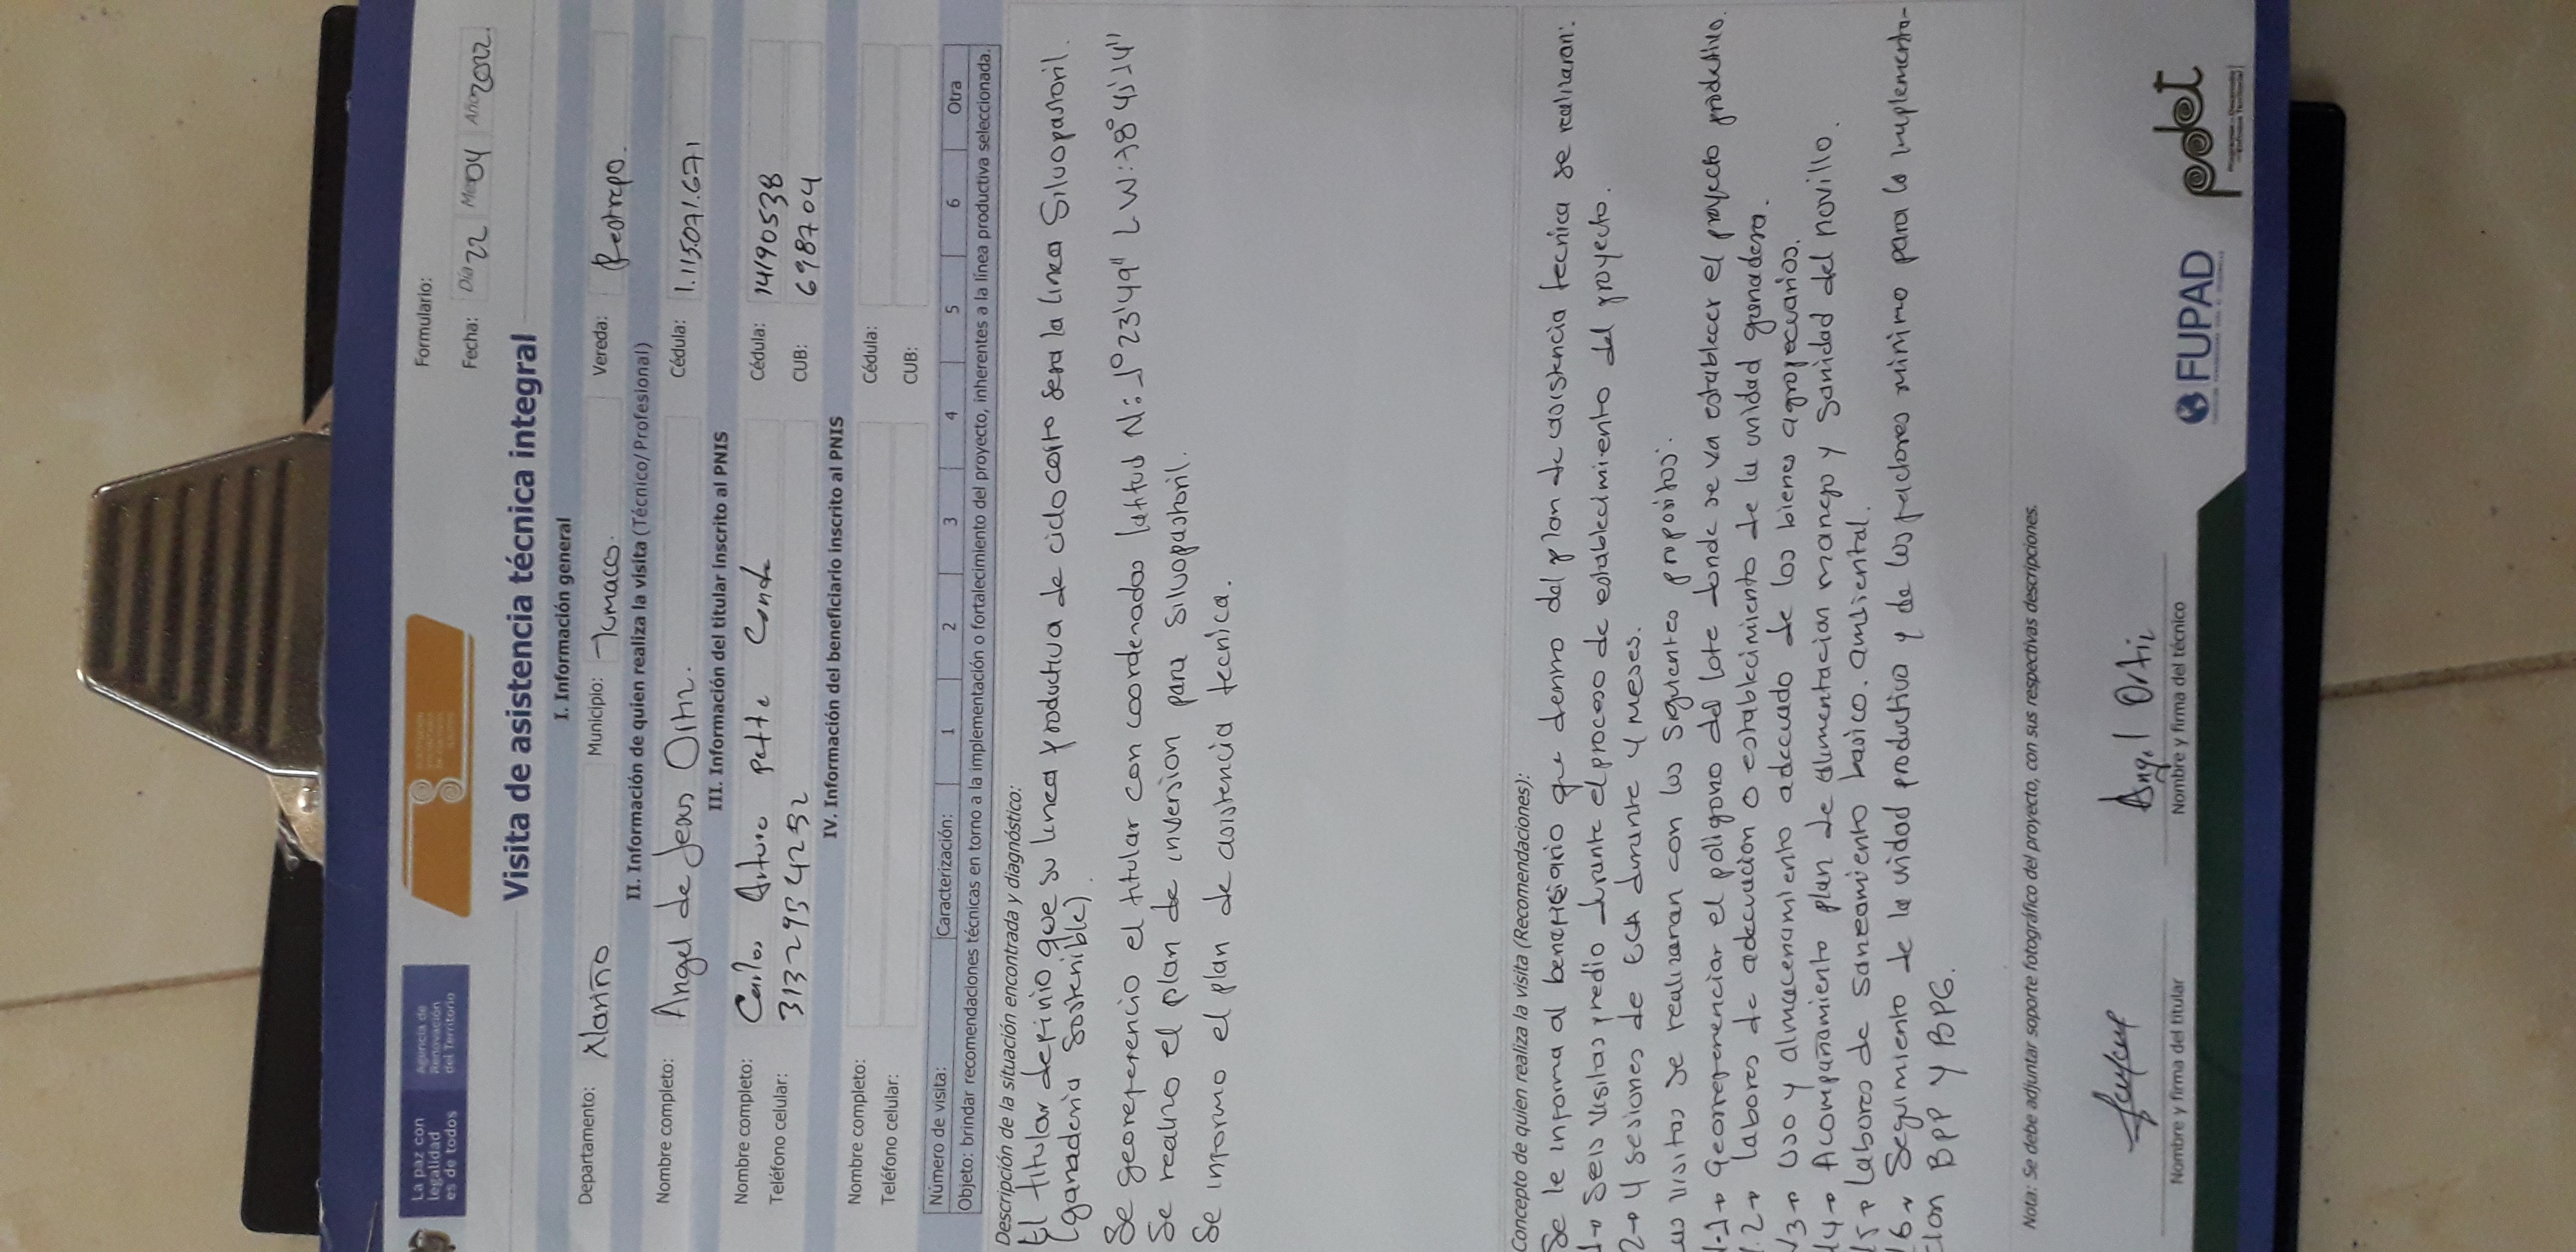 La paz con
legalidad
es de todos
Agencia de
Renovación
del Territorio
Formulario:
Fecha: Día 22 Mes 04 Año 2022.
Visita de asistencia técnica integral
I. Información general
Departamento: Nariño Municipio: Tumaco. Vereda: Restrepo.
II. Información de quien realiza la visita (Técnico/Profesional)
Nombre completo: Angel de Jesus Ortiz. Cédula: 1.115.071.671
III. Información del titular inscrito al PNIS
Nombre completo: Carlos Arturo patte Conde Cédula: 14190538
Teléfono celular: 3132934252 CUB: 698704
IV. Información del beneficiario inscrito al PNIS
Nombre completo: Cédula:
Teléfono celular: CUB:
Número de visita: Caracterización: 1 2 3 4 5 6 Otra
Objeto: brindar recomendaciones técnicas en torno a la implementación o fortalecimiento del proyecto, inherentes a la línea productiva seleccionada.
Descripción de la situación encontrada y diagnóstico:
El titular definio que su linea productiva de ciclo corto sera la linea Silvopastoril.
(ganaderia Sostenible).
Se georeferencio el titular con coordenadas latitud N: 1°23'49" L W: 78°45'24"
Se realizo el plan de inversion para silvopastoril.
Se informo el plan de asistencia tecnica.
Concepto de quien realiza la visita (Recomendaciones):
Se le informa al beneficiario que dentro del plan de asistencia tecnica se realizaran:
1→ Seis visitas predio durante el proceso de establecimiento del proyecto.
2→ 4 sesiones de ECA durante 4 meses.
las visitas se realizaran con los siguientes propósitos:
1.1→ Georreferenciar el poligono del lote donde se va establecer el proyecto productivo.
1.2→ labores de adecuacion o establecimiento de la unidad ganadera.
1.3→ uso y almacenamiento adecuado de los bienes agropecuarios.
1.4→ Acompañamiento plan de alimentacion manejo y Sanidad del novillo.
1.5→ labores de saneamiento basico. ambiental.
1.6→ Seguimiento de la unidad productiva y de los factores minimo para la implementa-
cion BPP Y BPG.
Nota: Se debe adjuntar soporte fotográfico del proyecto, con sus respectivas descripciones.
Angel Ortiz
Nombre y firma del titular Nombre y firma del técnico
FUPAD
pdet